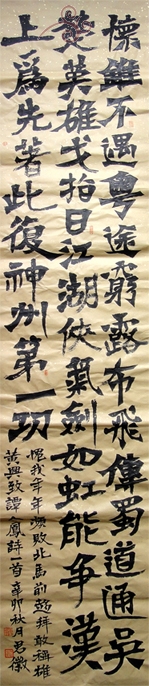 懷錐不遇粤途窮露布飛傳蜀道通吴
楚英雄戈指日江湖俠氣劍如虹能爭漢
上爲先著此復神州第一功
愧我年年頻敗北馬前趨拜敢稱雄
黄興致譚人鳳詩一首辛卯秋月君徽